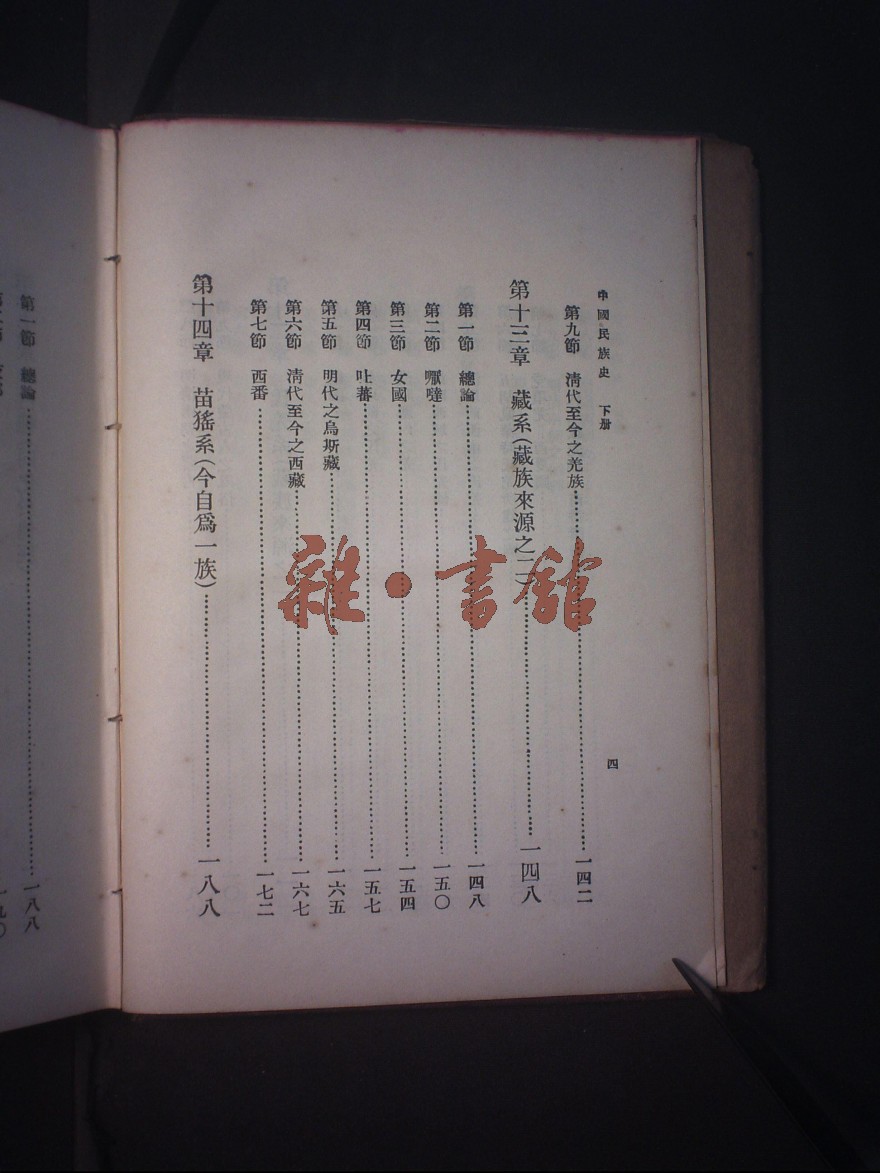 中國民族史 下册
四
第九節 清代至今之羌族……一四二
第十三章 藏系(藏族來源之二)……一四八
第一節 總論……一四八
第二節 嚈噠……一五〇
第三節 女國……一五四
第四節 吐蕃……一五七
第五節 明代之烏斯藏……一六五
第六節 清代至今之西藏……一六七
第七節 西番……一七二
第十四章 苗猺系(今自爲一族)……一八八
第一節 總論……一八八
一九〇
雜·書館